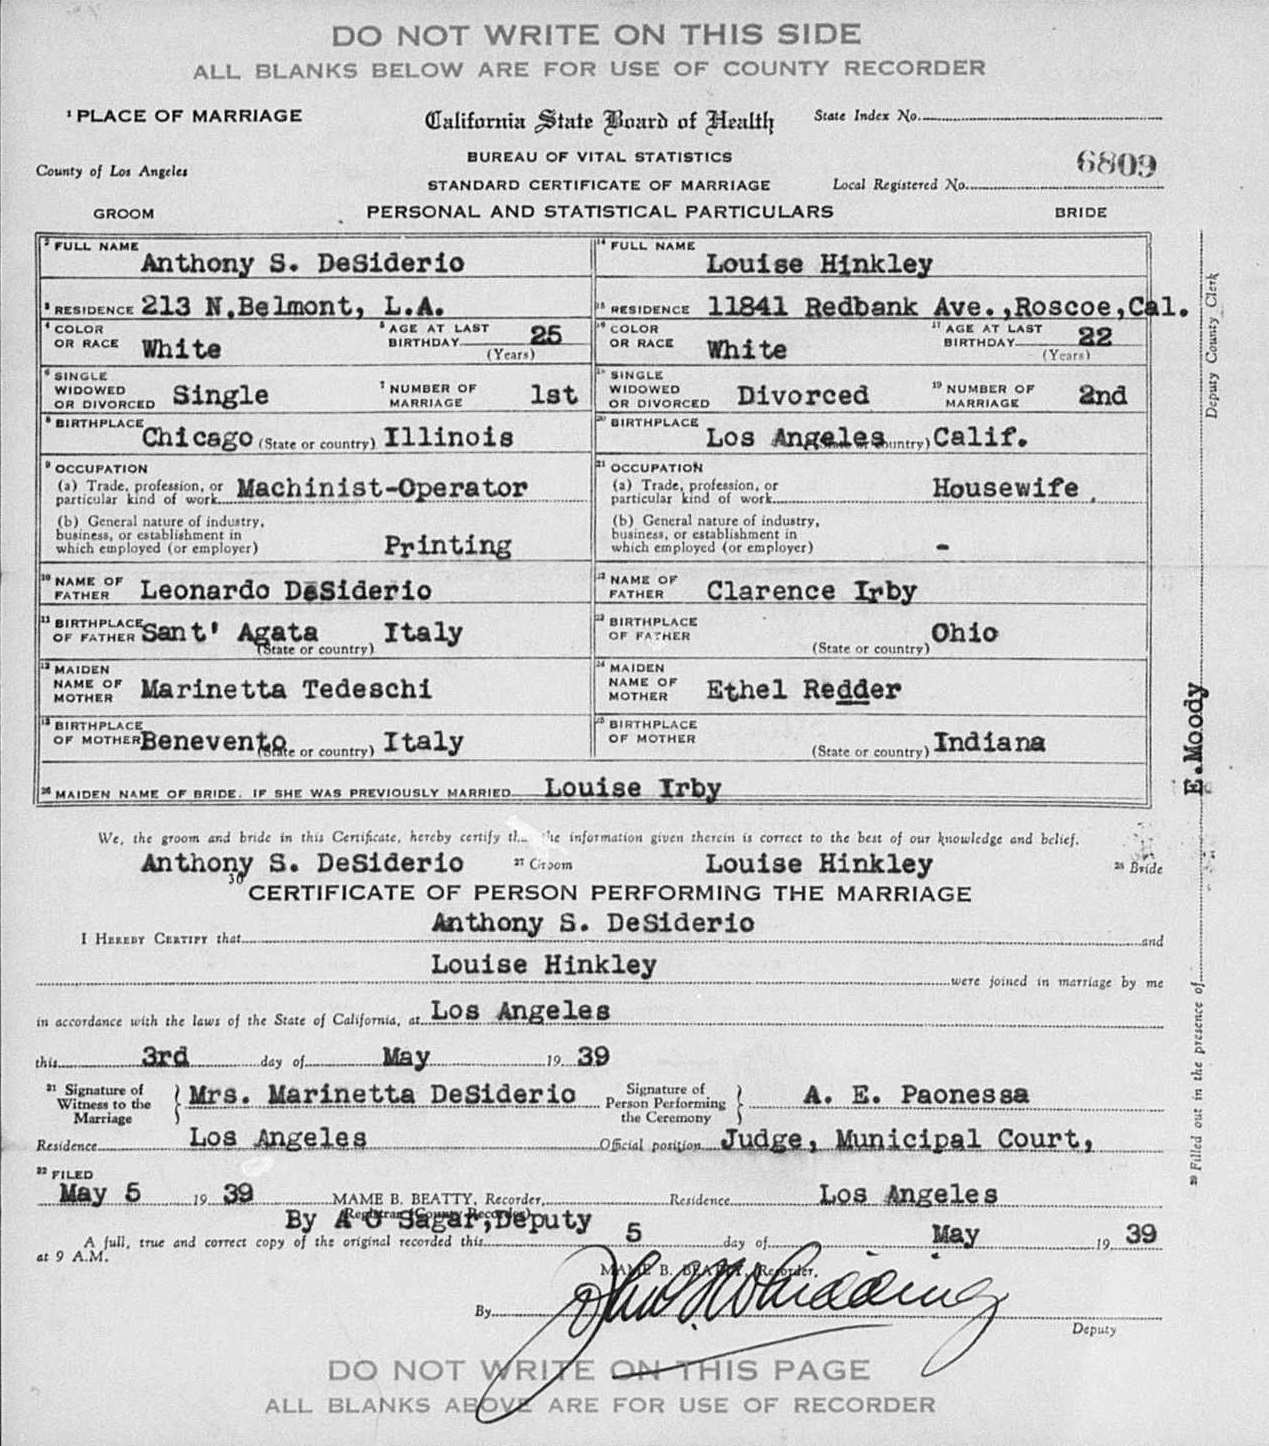 DO NOT WRITE ON THIS SIDE
ALL BLANKS BELOW ARE FOR USE OF COUNTY RECORDER
1 PLACE OF MARRIAGE
California State Board of Health
State Index No.
BUREAU OF VITAL STATISTICS
6809
County of Los Angeles
STANDARD CERTIFICATE OF MARRIAGE
Local Registered No.
GROOM
PERSONAL AND STATISTICAL PARTICULARS
BRIDE
2 FULL NAME Anthony S. DeSiderio
14 FULL NAME Louise Hinkley
3 RESIDENCE 213 N.Belmont, L.A.
15 RESIDENCE 11841 Redbank Ave.,Roscoe,Cal.
4 COLOR OR RACE White 5 AGE AT LAST BIRTHDAY 25 (Years)
16 COLOR OR RACE White 17 AGE AT LAST BIRTHDAY 22 (Years)
6 SINGLE WIDOWED OR DIVORCED Single 7 NUMBER OF MARRIAGE 1st
18 SINGLE WIDOWED OR DIVORCED Divorced 19 NUMBER OF MARRIAGE 2nd
8 BIRTHPLACE Chicago (State or country) Illinois
20 BIRTHPLACE Los Angeles (State or country) Calif.
9 OCCUPATION
(a) Trade, profession, or particular kind of work Machinist-Operator
(b) General nature of industry, business, or establishment in which employed (or employer) Printing
21 OCCUPATION
(a) Trade, profession, or particular kind of work Housewife
(b) General nature of industry, business, or establishment in which employed (or employer) -
10 NAME OF FATHER Leonardo DeSiderio
NAME OF FATHER Clarence Irby
11 BIRTHPLACE OF FATHER Sant' Agata (State or country) Italy
BIRTHPLACE OF FATHER (State or country) Ohio
12 MAIDEN NAME OF MOTHER Marinetta Tedeschi
24 MAIDEN NAME OF MOTHER Ethel Redder
13 BIRTHPLACE OF MOTHER Benevento (State or country) Italy
25 BIRTHPLACE OF MOTHER (State or country) Indiana
26 MAIDEN NAME OF BRIDE, IF SHE WAS PREVIOUSLY MARRIED Louise Irby
We, the groom and bride in this Certificate, hereby certify that the information given therein is correct to the best of our knowledge and belief.
Anthony S. DeSiderio 27 Groom Louise Hinkley 28 Bride
30 CERTIFICATE OF PERSON PERFORMING THE MARRIAGE
I HEREBY CERTIFY that Anthony S. DeSiderio and
Louise Hinkley were joined in marriage by me
in accordance with the laws of the State of California, at Los Angeles
this 3rd day of May 19 39
31 Signature of Witness to the Marriage } Mrs. Marinetta DeSiderio
Signature of Person Performing the Ceremony } A. E. Paonessa
Residence Los Angeles Official position Judge, Municipal Court,
32 FILED
May 5 19 39 MAME B. BEATTY, Recorder, Residence Los Angeles
Registrar (County Recorder)
By A O Sagar,Deputy
A full, true and correct copy of the original recorded this 5 day of May 19 39
at 9 A.M.
MAME B. BEATTY, Recorder,
By
Deputy
DO NOT WRITE ON THIS PAGE
ALL BLANKS ABOVE ARE FOR USE OF RECORDER
29 Filled out in the presence of E.Moody Deputy County Clerk